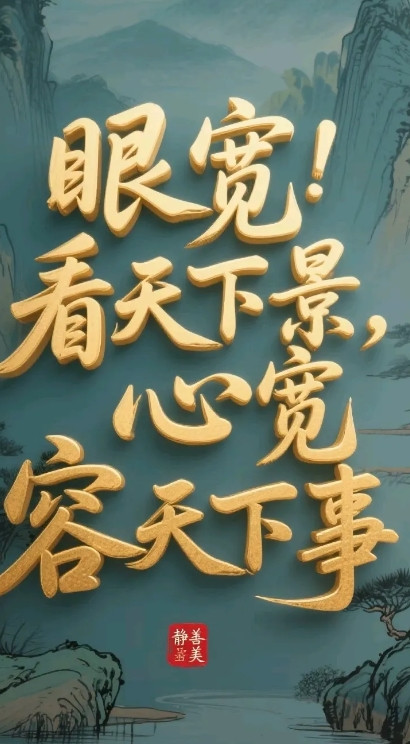 眼宽!
看天下景,
心宽
容天下事
静善
美